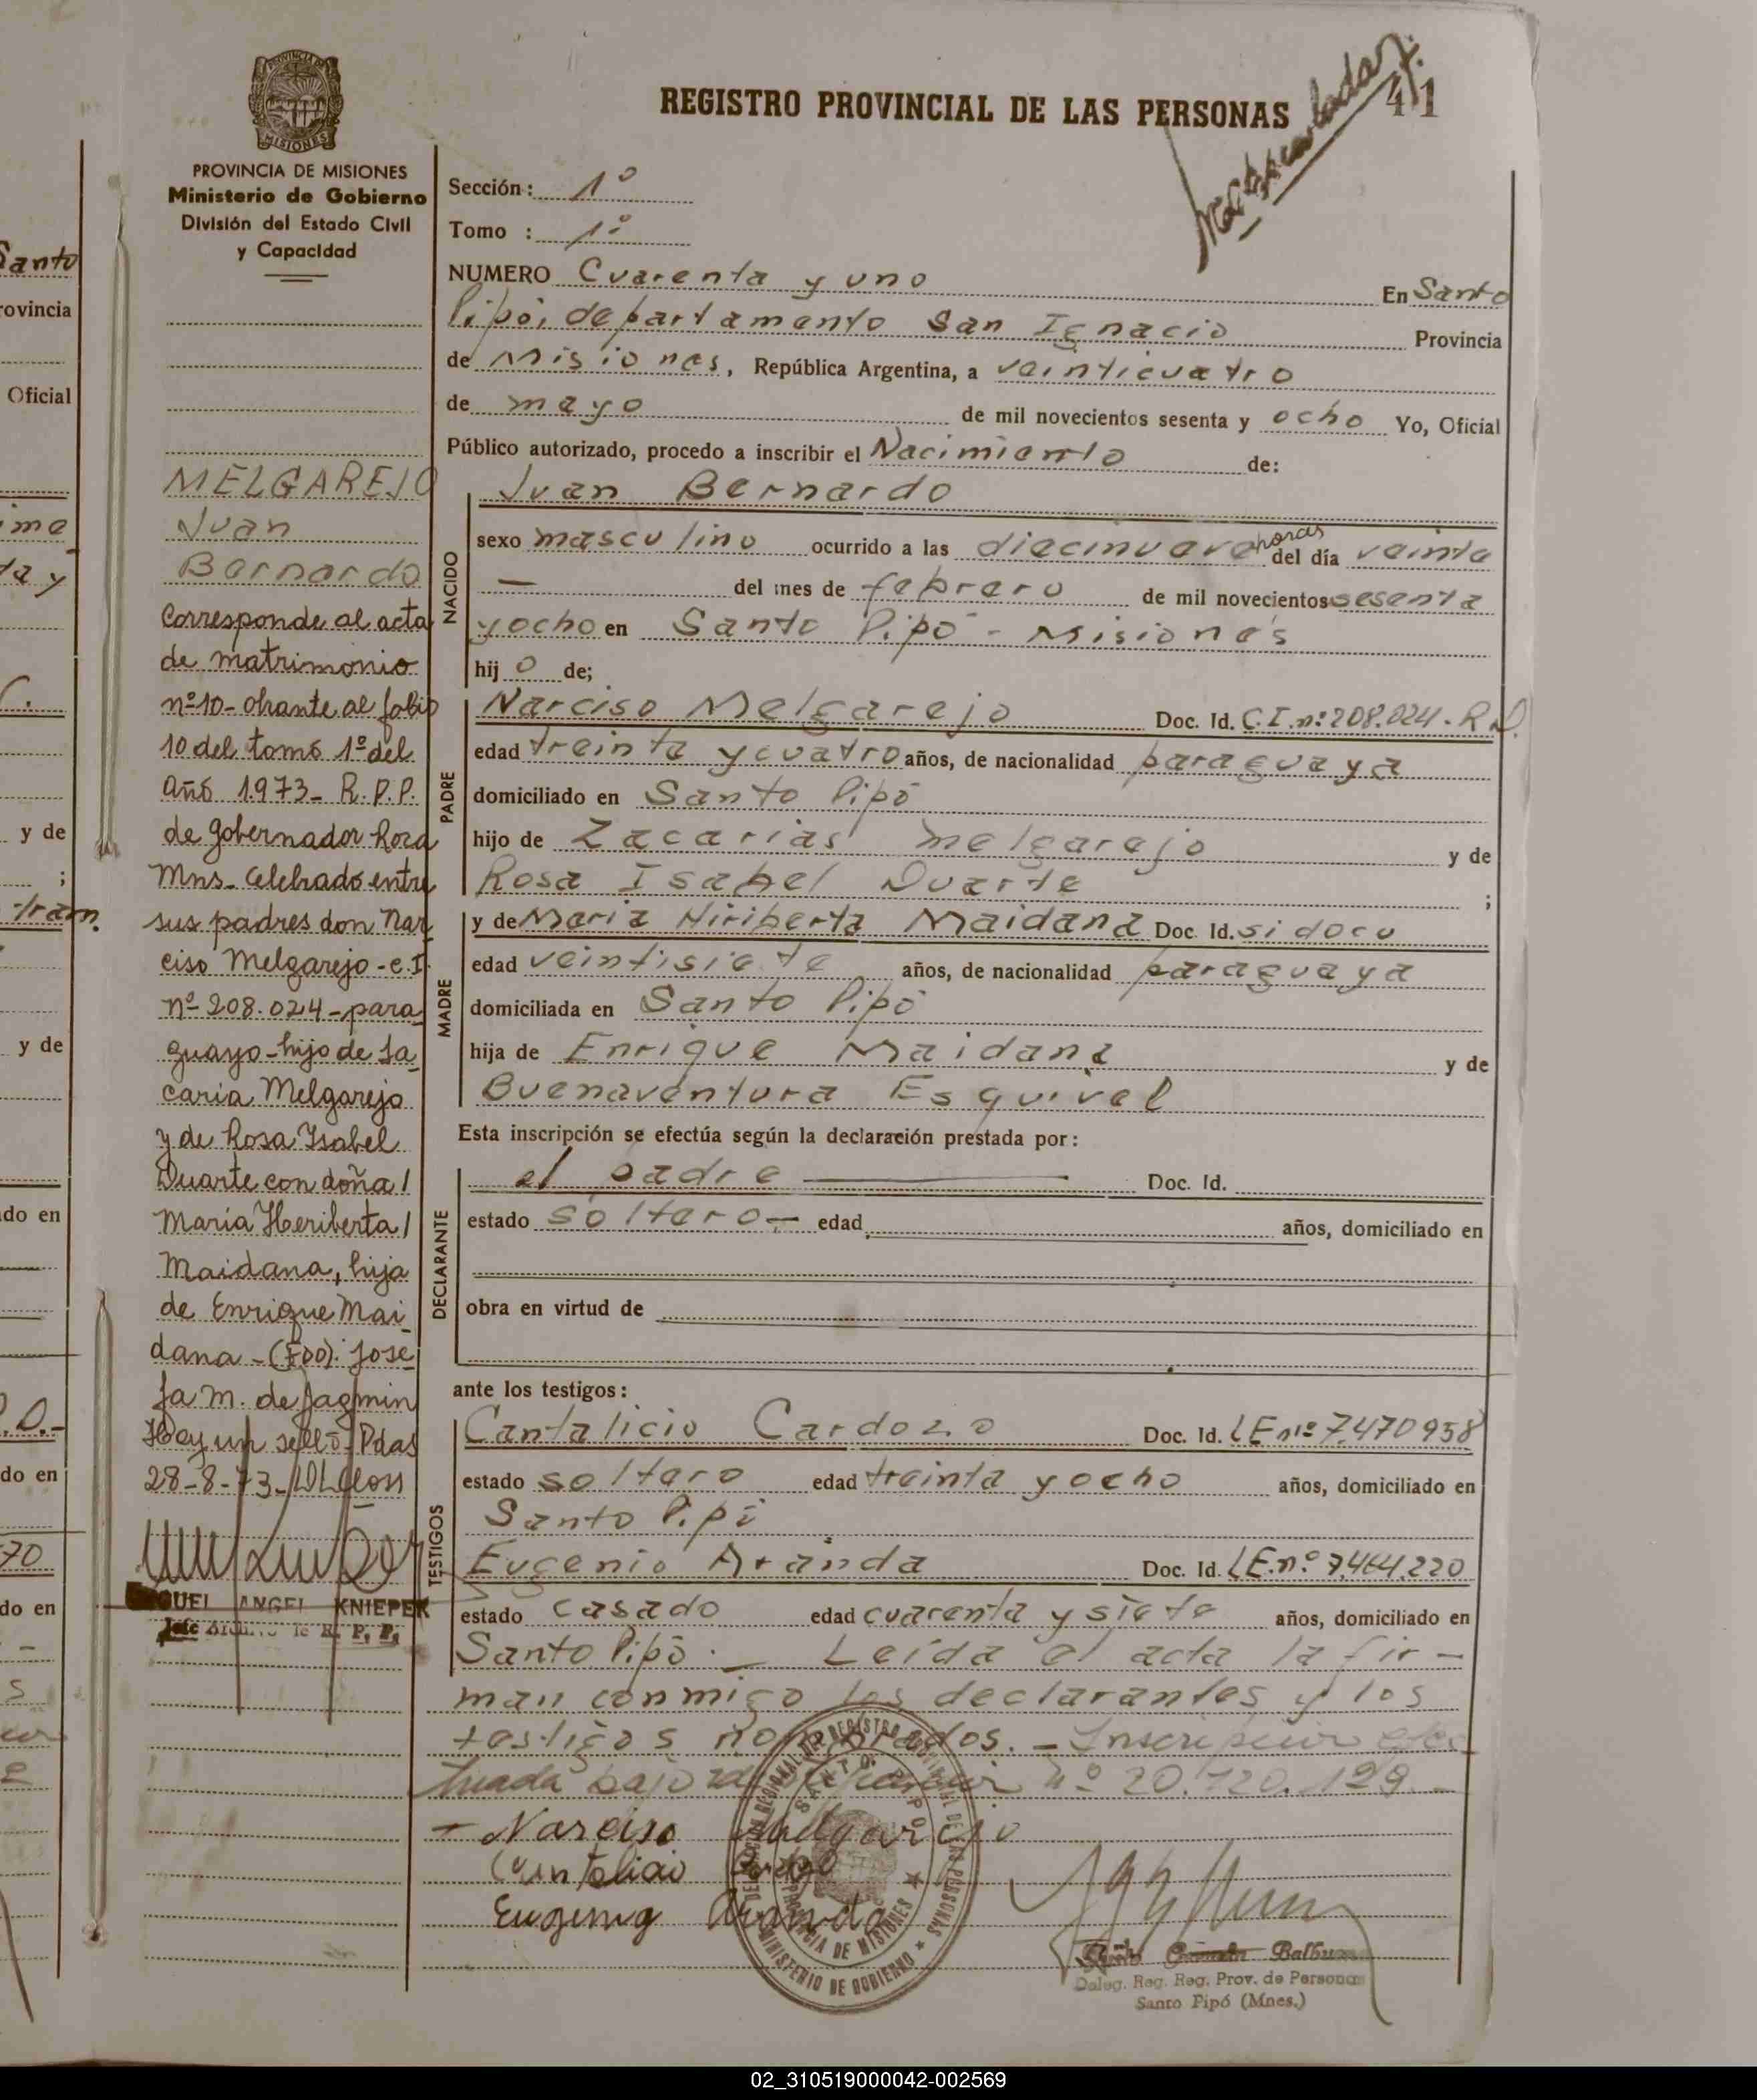 REGISTRO PROVINCIAL DE LAS PERSONAS
41
PROVINCIA DE MISIONES
Ministerio de Gobierno
División del Estado Civil
y Capacidad
Sección: 1º
Tomo : 1º
NUMERO Cuarenta y uno En Santo
Pipó, departamento San Ignacio Provincia
de Misiones, República Argentina, a veinticuatro
de mayo de mil novecientos sesenta y ocho Yo, Oficial
Público autorizado, procedo a inscribir el Nacimiento de:
Juan Bernardo
NACIDO
sexo masculino ocurrido a las diecinueve horas del día veinte
— del mes de febrero de mil novecientos sesenta
y ocho en Santo Pipó - Misiones
hij o de;
PADRE
Narciso Melgarejo Doc. Id. C.I. nº 208.024. R.P.
edad treinta y cuatro años, de nacionalidad paraguaya
domiciliado en Santo Pipó
hijo de Zacarias Melgarejo y de
Rosa Isabel Duarte ;
MADRE
y de Maria Hiriberta Maidana Doc. Id. si docu
edad veintisiete años, de nacionalidad paraguaya
domiciliada en Santo Pipó
hija de Enrique Maidana y de
Buenaventura Esquivel
Esta inscripción se efectúa según la declaración prestada por:
DECLARANTE
el padre — Doc. Id.
estado soltero - edad años, domiciliado en
obra en virtud de
ante los testigos:
TESTIGOS
Cantalicio Cardozo Doc. Id. LE nº 7.470958
estado soltero edad treinta y ocho años, domiciliado en
Santo Pipó
Eugenio Aranda Doc. Id. LE. nº 7.464.220
estado casado edad cuarenta y siete años, domiciliado en
Santo Pipó. — Leída el acta la fir-
man conmigo los declarantes y los
testigos nombrados. - Inscripción efec
tuada bajo nº 20.120.129. -
Narciso Melgarejo
Cantalicio
Eugenio Aranda
DELEGACION REGIONAL DEL REGISTRO PROVINCIAL DE LAS PERSONAS
SANTO PIPO
PROVINCIA DE MISIONES
MINISTERIO DE GOBIERNO
Balbu
Deleg. Reg. Reg. Prov. de Personas
Santo Pipó (Mnes.)
MELGAREJO
Juan
Bernardo
Corresponde al acta
de matrimonio
nº 10 - obrante al folio
10 del tomo 1º del
año 1973 - R.P.P.
de Gobernador Roca
Mns. Celebrado entre
sus padres don Nar
ciso Melgarejo - C.I.
nº 208.024 - para
guayo - hijo de Sa
caria Melgarejo
y de Rosa Isabel
Duarte con doña /
Maria Heriberta /
Maidana, hija
de Enrique Mai
dana - (FDO). Jose
fa M. de Jagmin
Hay un sello - Pdas
28-8-73-
MIGUEL ANGEL KNIEPER
Jefe Archivo de R. P. P.
Santo
rovincia
Oficial
ime
ta y
y de
;
tram.
y de
do en
do en
70
do en
02_310519000042-002569